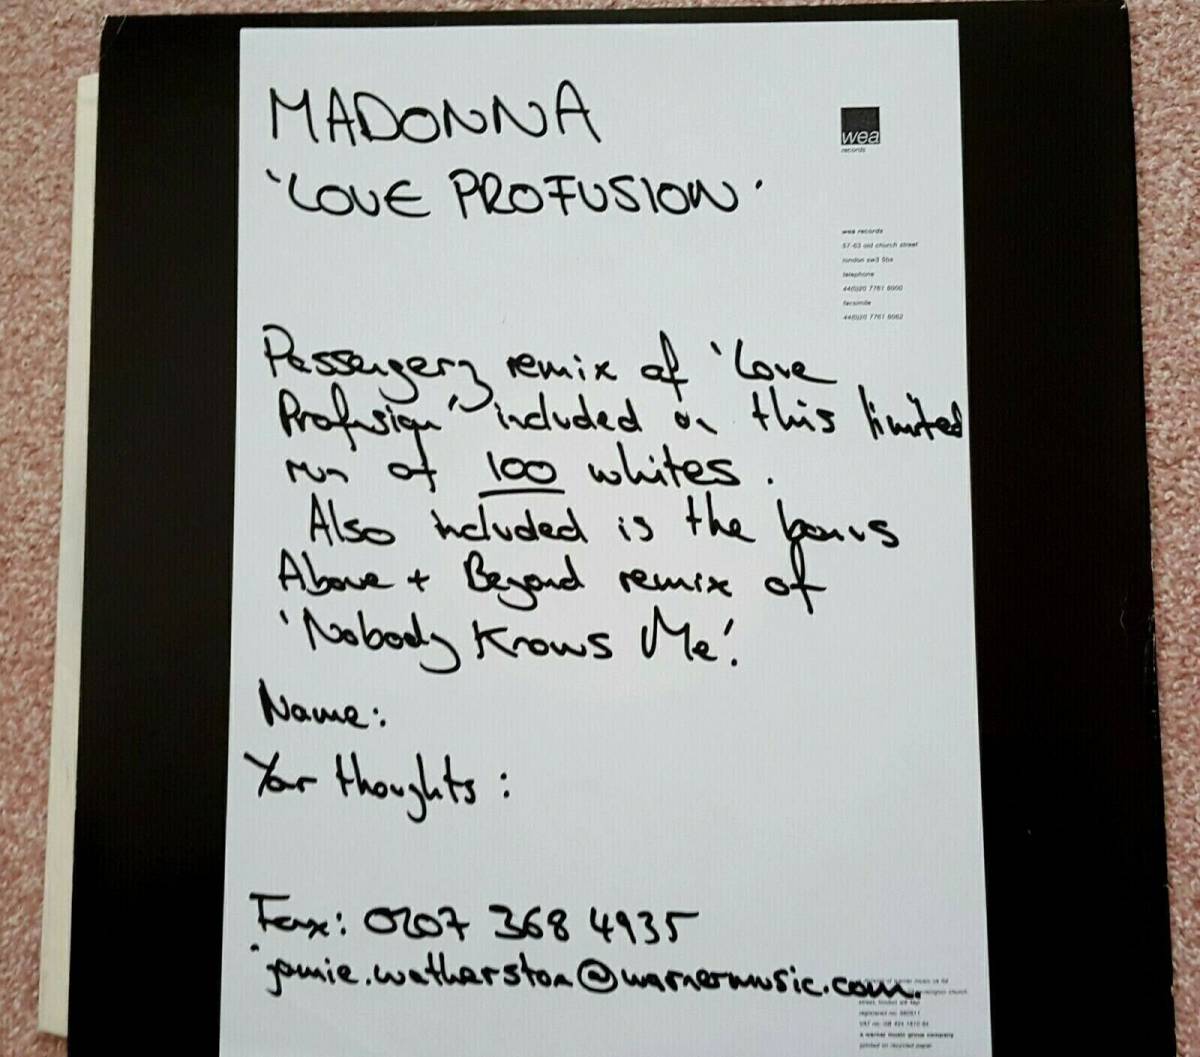 MADONNA
'LOVE PROFUSION'
wea
records
wea records
57-63 old church street
london sw3 5bs
telephone
44(0)20 7761 6000
facsimile
44(0)20 7761 6062
Passengerz remix of 'Love
Profusion' included on this limited
run of 100 whites.
Also included is the bonus
Above + Beyond remix of
'Nobody Knows Me'.
Name:
Your thoughts:
Fax: 0207 368 4935
jamie.watherston@warnermusic.com.
a warner music group company
printed on recycled paper